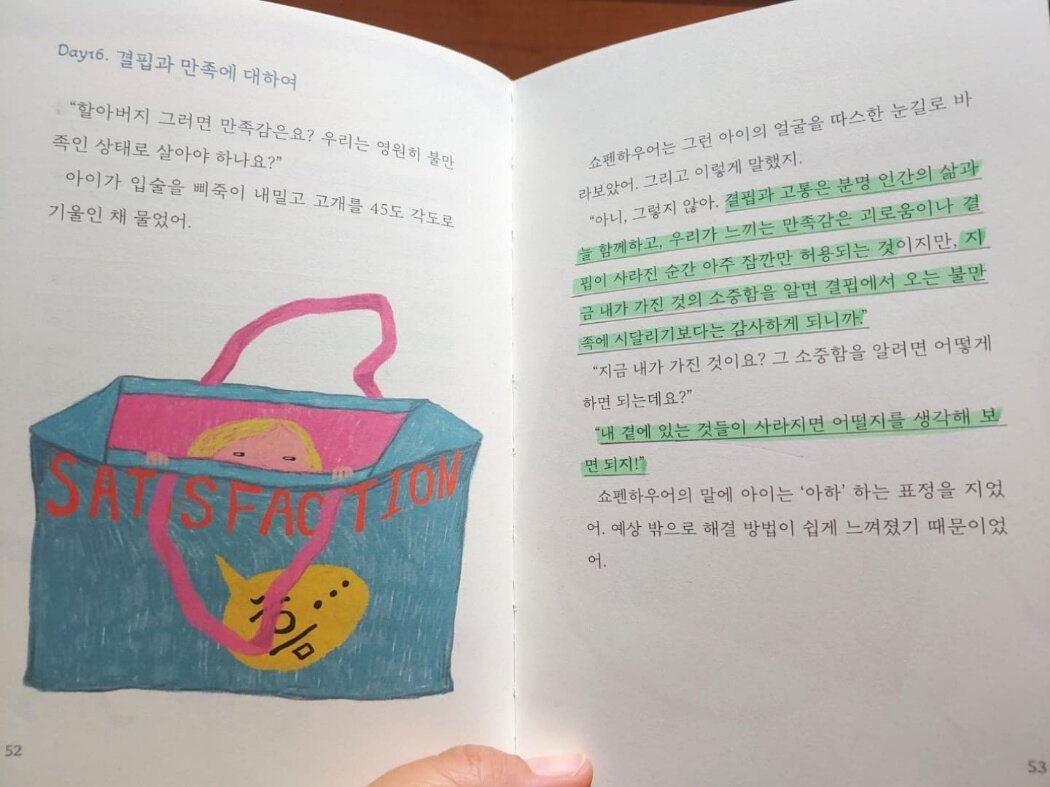 Day16. 결핍과 만족에 대하여
“할아버지 그러면 만족감은요? 우리는 영원히 불만
족인 상태로 살아야 하나요?”
아이가 입술을 삐죽이 내밀고 고개를 45도 각도로
기울인 채 물었어.
SATISFACTION
흐음...
52
쇼펜하우어는 그런 아이의 얼굴을 따스한 눈길로 바
라보았어. 그리고 이렇게 말했지.
“아니, 그렇지 않아. 결핍과 고통은 분명 인간의 삶과
늘 함께하고, 우리가 느끼는 만족감은 괴로움이나 결
핍이 사라진 순간 아주 잠깐만 허용되는 것이지만, 지
금 내가 가진 것의 소중함을 알면 결핍에서 오는 불만
족에 시달리기보다는 감사하게 되니까.”
“지금 내가 가진 것이요? 그 소중함을 알려면 어떻게
하면 되는데요?”
“내 곁에 있는 것들이 사라지면 어떨지를 생각해 보
면 되지!”
쇼펜하우어의 말에 아이는 ‘아하’ 하는 표정을 지었
어. 예상 밖으로 해결 방법이 쉽게 느껴졌기 때문이었
어.
53